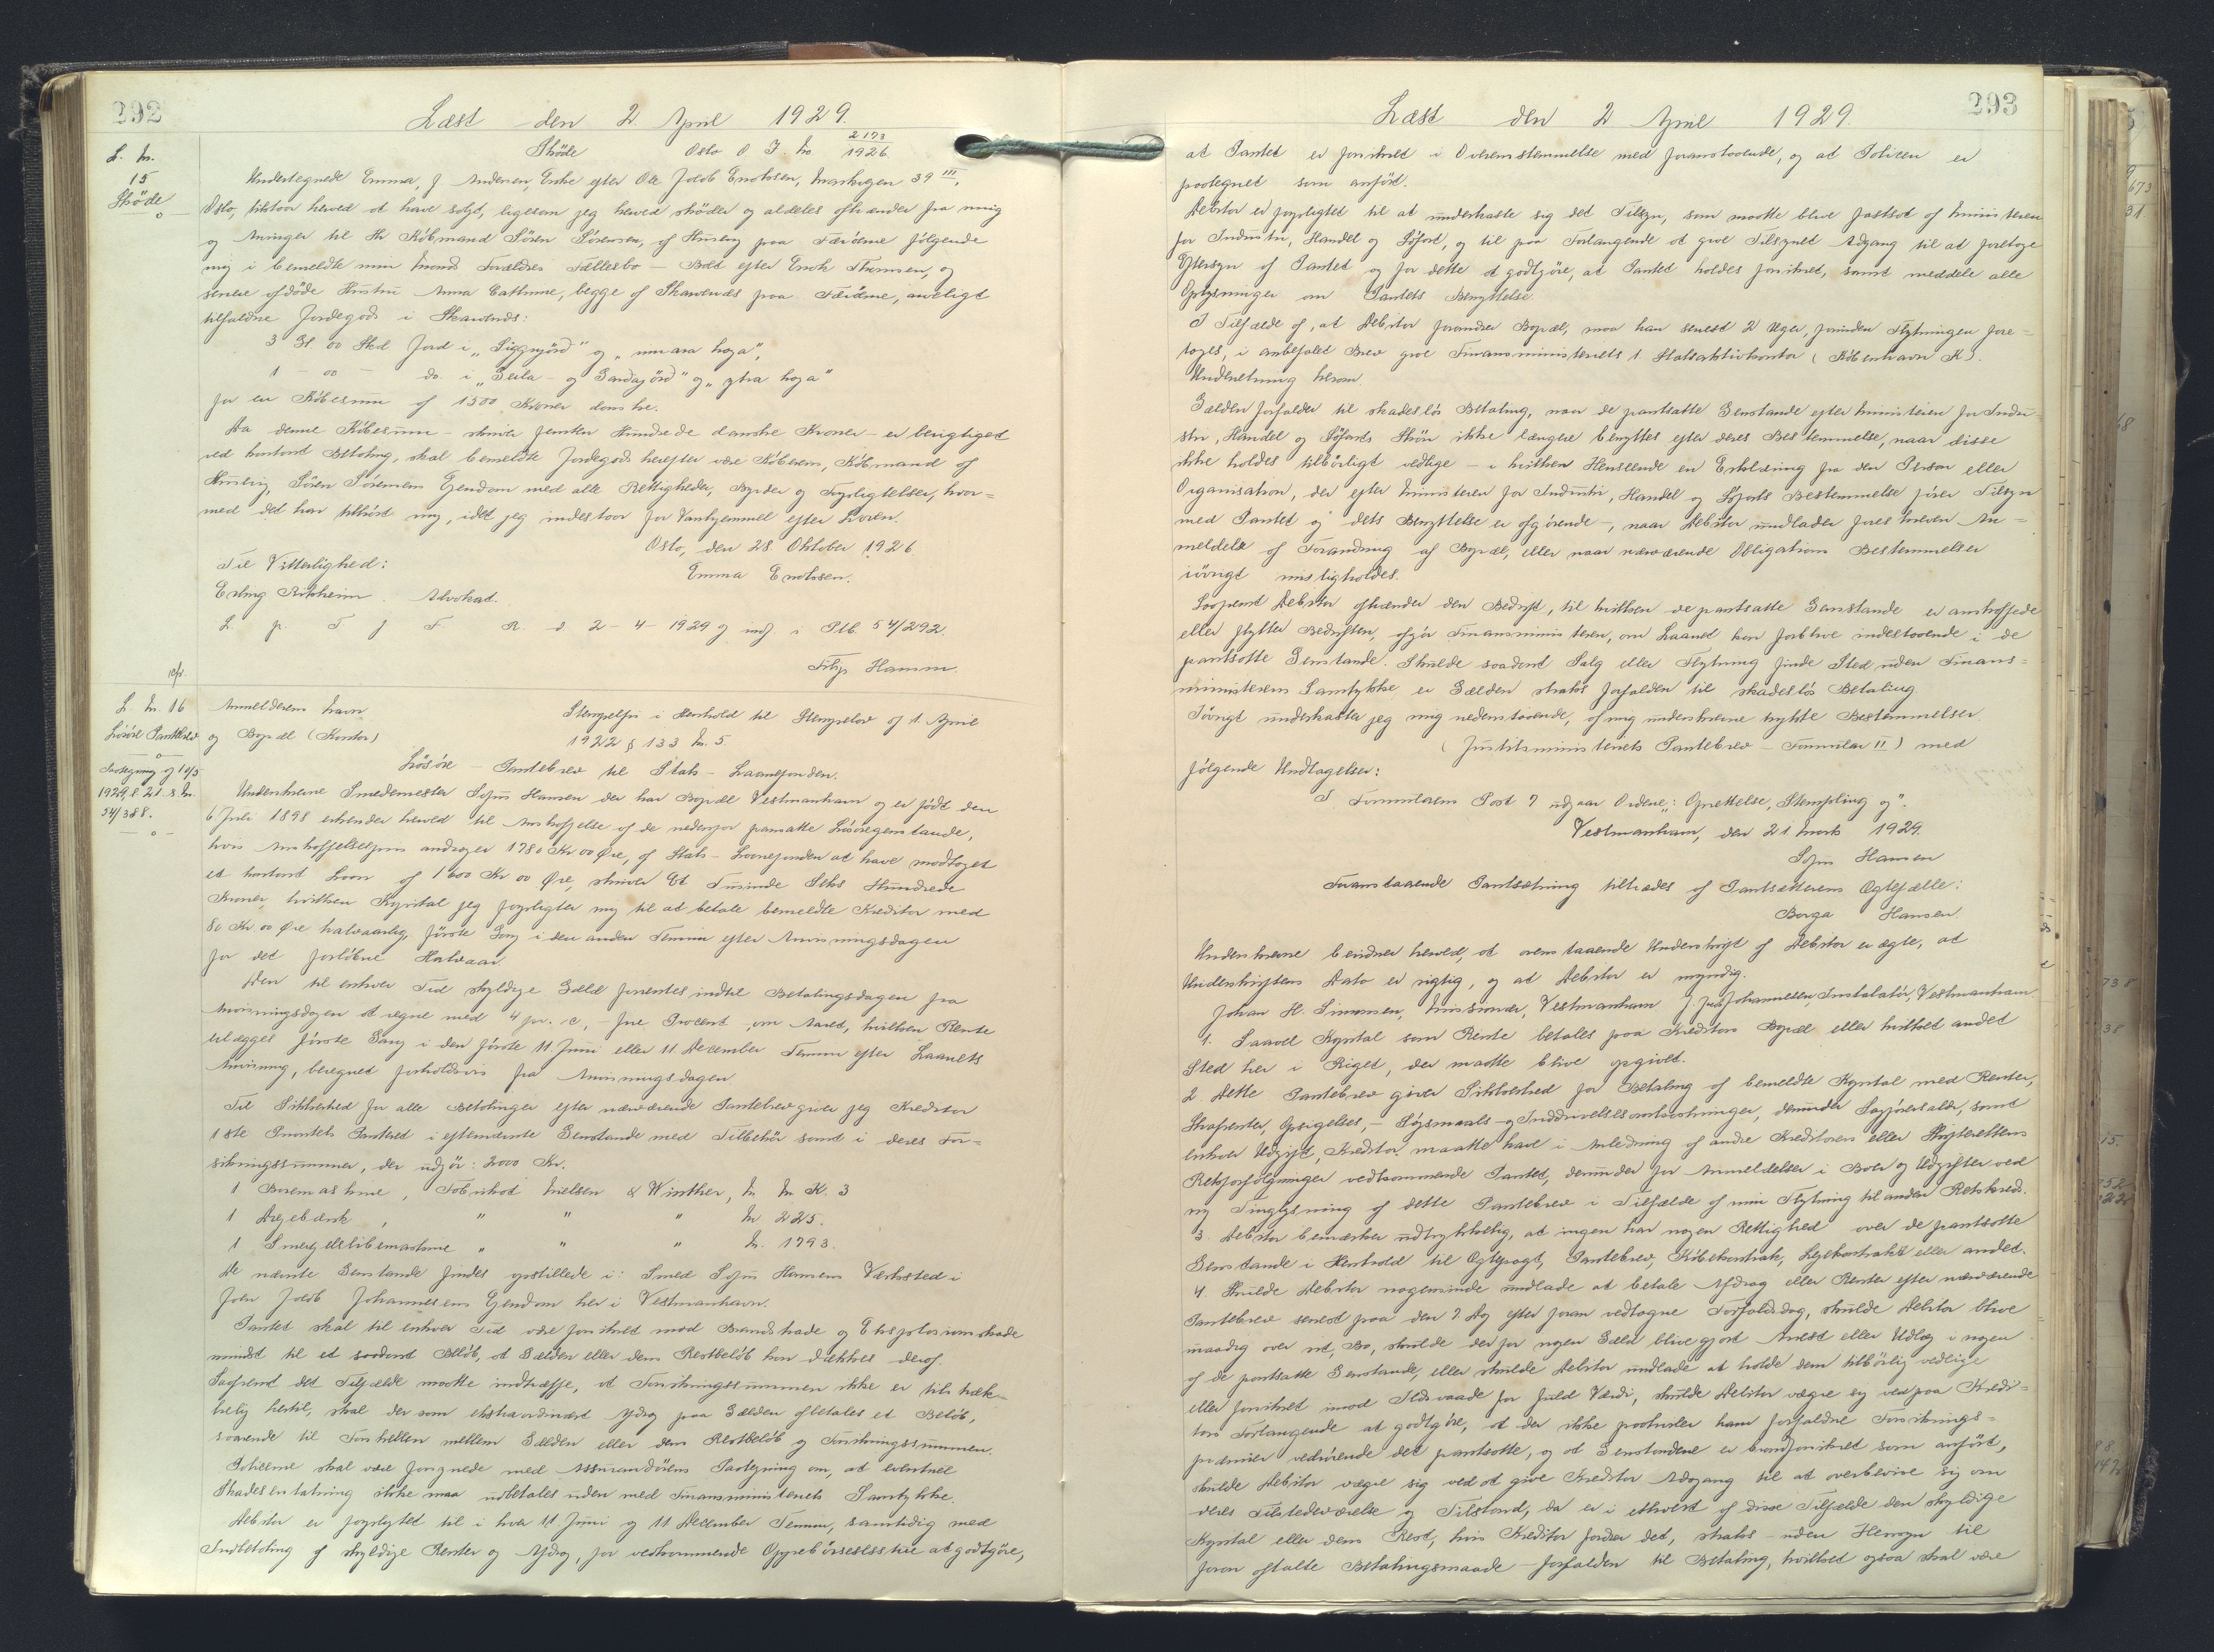 292
Læst den 2 April 1929.
L. Nr.
15
Skøde
Skøde Oslo O J. No 2173/1926
Undertegnede Emma, f. Andersen, Enke efter Ole Jacob Enoksen, 39 III,
Oslo, tilstaar herved at have solgt, ligesom jeg herved skøder og aldeles afhænder fra mig
og Arvinger til Hr Købmand Søren Sørensen, af Husevig paa Færøerne følgende
mig i bemeldte min Mands Forældres Fællesbo – Boet efter Enok Thomsen, og
senere afdøde Hustru Anna Cathrine, begge af Skarvenæs paa Færøerne, arveligt
tilfaldne Jordegods i Skarvenæs:
3 Gl 00 Skd Jord i „Siggnjørd" og „nurara hoga",
1 – 00 – do. i „Geila- og Gardajørd" og „ytra hoga"
for en Købesum af 1500 Kroner danske.
Da denne Købesum – skriver femten Hundrede danske Kroner – er berigtiget
ved kontant Betaling, skal bemeldte Jordegods herefter være Køberens, Købmand af
Husevig, Søren Sørensens Ejendom med alle Rettigheder, Byrder og Forpligtelser, hvor=
med det har tilhørt mig, idet jeg indestaar for Vanhjemmel efter Loven.
Oslo, den 28. Oktober 1926.
Til Vitterlighed:
Emma Enoksen.
Erling Rikheim. Advokat.
L. p. T f F. R. d. 2-4-1929 og indf. i Ptb. 54/292.
Filip Hamm.
L. Nr. 16
Løsøre Pantebrev
1929, L. 21. 8. Nr.
54/388.
Anmelderens Navn
og Bopæl (Kontor)
Stempelfri i Henhold til Stempellov af 1. April
1922 § 133 Nr. 5.
Løsøre – Pantebrev til Stats-Laanefonden.
Underskrevne Smedemester Sofus Hansen der har Bopæl Vestmanhavn og er født den
6 Juli 1898 erkender herved til Anskaffelse af de nedenfor pansatte Løsøregenstande,
hvis Anskaffelsespris andrager 1780 Kr 00 Øre, af Stats-Laanefonden at have modtaget
et kontant Laan af 1600 Kr 00 Øre, skriver Et Tusinde Seks Hundrede
Kroner, hvilken Kapital jeg forpligter mig til at betale bemeldte Kreditor med
80 Kr. 00 Øre halvaarlig, første Gang i den anden Termin efter Anvisningsdagen
for det forløbne Halvaar.
Den til enhver Tid skyldige Gæld forrentes indtil Betalingsdagen fra
Anvisningsdagen at regne med 4 pr. c, – fire Procent, om Aaret, hvilken Rente
erlægges første Gang i den første 11 Juni eller 11 December Termin efter Laanets
Anvisning, beregnet forholdsvis fra Anvisningsdagen.
Til Sikkerhed for alle Betalinger efter nærværende Pantebrev giver jeg Kreditor
1ste Prioritets Panteret i efternævnte Genstande med Tilbehør samt i deres For=
sikringssummer, der udgør: 2000 Kr.
1 Boremaskine, Fabrikat Nielsen & Winther, Nr. K. 3
1 Drejebænk, " " " Nr 225.
1 Smergelslibemaskine " " " Nr. 1793.
De nævnte Genstande findes opstillede i: Smed Sofus Hansens Værksted i
Joen Jacob Johannesens Ejendom her i Vestmanhavn.
Pantet skal til enhver Tid være forsikret mod Brandskade og Eksplosionsskade
mindst til et saadant Beløb, at Gælden eller dens Restbeløb kan dækkes deraf.
Saafremt det Tilfælde maatte indtræffe, at Forsikringssummen ikke er tilstræk-
kelig hertil, skal der som ekstraordinært Afdrag paa Gælden afbetales et Beløb,
svarende til Forskellen mellem Gælden eller dens Restbeløb og Forsikringssummen.
Policerne skal være forsynede med Assurandørens Paategning om, at eventuel
Skadeserstatning ikke maa udbetales uden med Finansministeriets Samtykke.
Debitor er forpligtet til i hver 11 Juni og 11 December Termin, samtidig med
Indbetaling af skyldige Renter og Afdrag, for vedkommende Oppebørselsstue at godtgøre,
293
Læst den 2 April 1929.
at Pantet er forsikret i Overensstemmelse med foranstaaende, og at Policen er
paategnet som anført.
Debitor er forpligtet til at underkaste sig det Tilsyn, som maatte blive fastsat af Ministeren
for Industri, Handel og Søfart, og til paa Forlangende at give Tilsynet Adgang til at foretage
Eftersyn af Pantet og for dette at godtgøre, at Pantet holdes forsikret, samt meddele alle
Oplysninger om Pantets Benyttelse.
I Tilfælde af, at Debitor forandrer Bopæl, maa han senest 2 Uger, forinden Flytningen fore=
tages, i anbefalet Brev give Finansministeriets 1. Statsaktivkontor (København K).
Underretning herom.
Gælden forfalder til skadesløs Betaling, naar de pantsatte Genstande efter Ministeren for Indu-
stri, Handel og Søfarts Skøn ikke længere benyttes efter deres Bestemmelse, naar disse
ikke holdes tilbørligt vedlige – i hvilken Henseende en Erklæring fra den Person eller
Organisation, der efter Ministeren for Industri, Handel og Søfarts Bestemmelse fører Tilsyn
med Pantet og dets Benyttelse er afgørende –, naar Debitor undlader foreskreven An=
meldelse af Forandring af Bopæl, eller naar nærværende Obligations Bestemmelser
iøvrigt misligholdes.
Saafremt Debitor afhænder den Bedrift, til hvilken de pantsatte Genstande er anskaffede
eller flytter Bedriften, afgør Finansministeren, om Laanet kan forblive indestaaende i de
pantsatte Genstande. Skulde saadant Salg eller Flytning finde Sted uden Finans=
ministerens Samtykke er Gælden straks forfalden til skadesløs Betaling
Iøvrigt underkaster jeg mig nedenstaaende, af mig underskrevne trykte Bestemmelser
(Justitsministeriets Pantebrev – Formular II) med
følgende Undtagelser:
I Formularens Post 7 udgaar Ordene: „Oprettelse, Stempling og".
Vestmanhavn, den 21 Marts 1929.
Sofus Hansen
Foranstaaende Pantsætning tiltrædes af Pantsætterens Ægtefælle:
Borga Hansen.
Underskrevne bevidner herved, at ovenstaaende Underskrift af Debitor er ægte, at
Underskriftens Dato er rigtig, og at Debitor er myndig.
Johan H. Simonsen, Missionær, Vestmanhavn J. Johannesen Instalatør, Vestmanhavn.
1. Saavel Kapital som Rente betales paa Kreditors Bopæl eller hvilket andet
Sted her i Riget, der maatte blive opgivet.
2 Dette Pantebrev giver Sikkerhed for Betaling af bemeldte Kapital med Renter,
Strafrenter, Opsigelses,- Søgsmaals- og Inddrivelsesomkostninger, derunder Sagførersalær, samt
enhver Udgift, Kreditor maatte have i Anledning af andre Kreditorers eller Skifterettens
Retsforfølgninger vedkommende Pantet, derunder for Anmeldelser i Boer og Udgifter ved
ny Tinglysning af dette Pantebrev i Tilfælde af min Flytning til anden Retskreds.
3 Debitor bemærker udtrykkelig, at ingen har nogen Rettighed over de pantsatte
Genstande i Henhold til Ægtepagt, Pantebrev, Købekontrakt, Lejekontrakt eller andet.
4. Skulde Debitor nogensinde undlade at betale Afdrag eller Renter efter nærværende
Pantebrev senest paa den 7 Dag efter foran vedtagne Forfaldsdag, skulde Debitor blive
umyndig over sit Bo, skulde der for nogen Gæld blive gjort Arrest eller Udlæg i nogen
af de pantsatte Genstande, eller skulde Debitor undlade at holde dem tilbørlig vedlige
eller forsikret imod Ildsvaade for fuld Værdi, skulde Debitor vægre sig ved paa Kredi=
tors Forlangende at godtgøre, at der ikke paahviler ham forfaldne Forsikrings=
præmier vedrørende det pantsatte, og at Genstandene er brandforsikret som anført,
skulde Debitor vægre sig ved at give Kreditor Adgang til at overbevise sig om
deres Tilstedeværelse og Tilstand, da er i ethvert af disse Tilfælde den skyldige
Kapital eller dens Rest, hvis Kreditor fordrer det, straks – uden Hensyn til
foran aftalte Betalingsmaade – forfalden til Betaling, hvilket ogsaa skal være